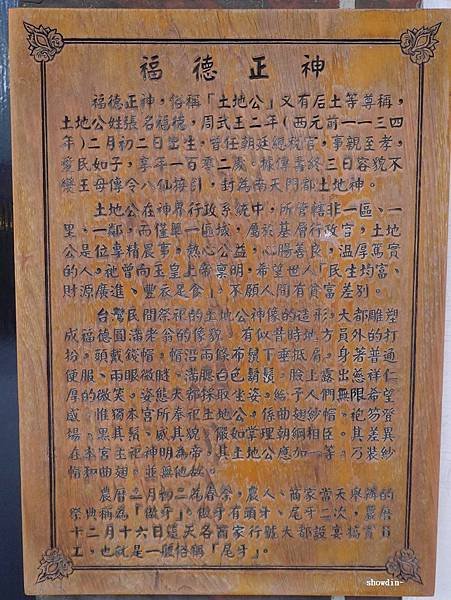 福德正神
福德正神，俗稱「土地公」又有后土等尊稱，
土地公姓張名福德，周武王二年（西元前一一三四
年）二月初二日出生，曾任朝廷總稅官，事親至孝，
愛民如子，享年一百零二歲。據傳壽終三日容貌不
變王母傳令八仙接引，封為南天門都土地神。
土地公在神界行政系統中，所管轄非一區、一
里、一鄰，而僅單一區域，屬於基層行政官，土地
公是位專精農事，熱心公益，心腸善良，溫厚篤實
的人。祂曾向玉皇上帝稟明，希望世人「民生均富、
財源廣進、豐衣足食」，不願人間有貧富差別。
台灣民間祭祀的土地公神像的造形，大都雕塑
成福德圓滿老翁的像貌。有似昔時地方員外的打
扮。頭戴錢帽。帽沿兩條布鬚下垂抵肩。身著普通
便服、兩眼微瞇。滿腮白色鬍鬚。臉上露出慈祥仁
厚的微笑。姿態大都採取坐姿。給予人們無限希望
感。惟獨本宮所奉祀土地公，係曲翅紗帽。袍笏登
場。黑其鬚、威其貌。儼如掌理朝綱相臣。其差異
在本宮主祀神明為帝。其土地公應加一等。乃裝紗
帽和曲翅。並無他故。
農曆二月初二為春祭，農人、商家當天舉辦的
祭典稱為「做牙」。做牙有頭牙、尾牙二次，農曆
十二月十六日這天各商家行號大都設宴犒賞員
工，也就是一般俗稱「尾牙」。
showdin-